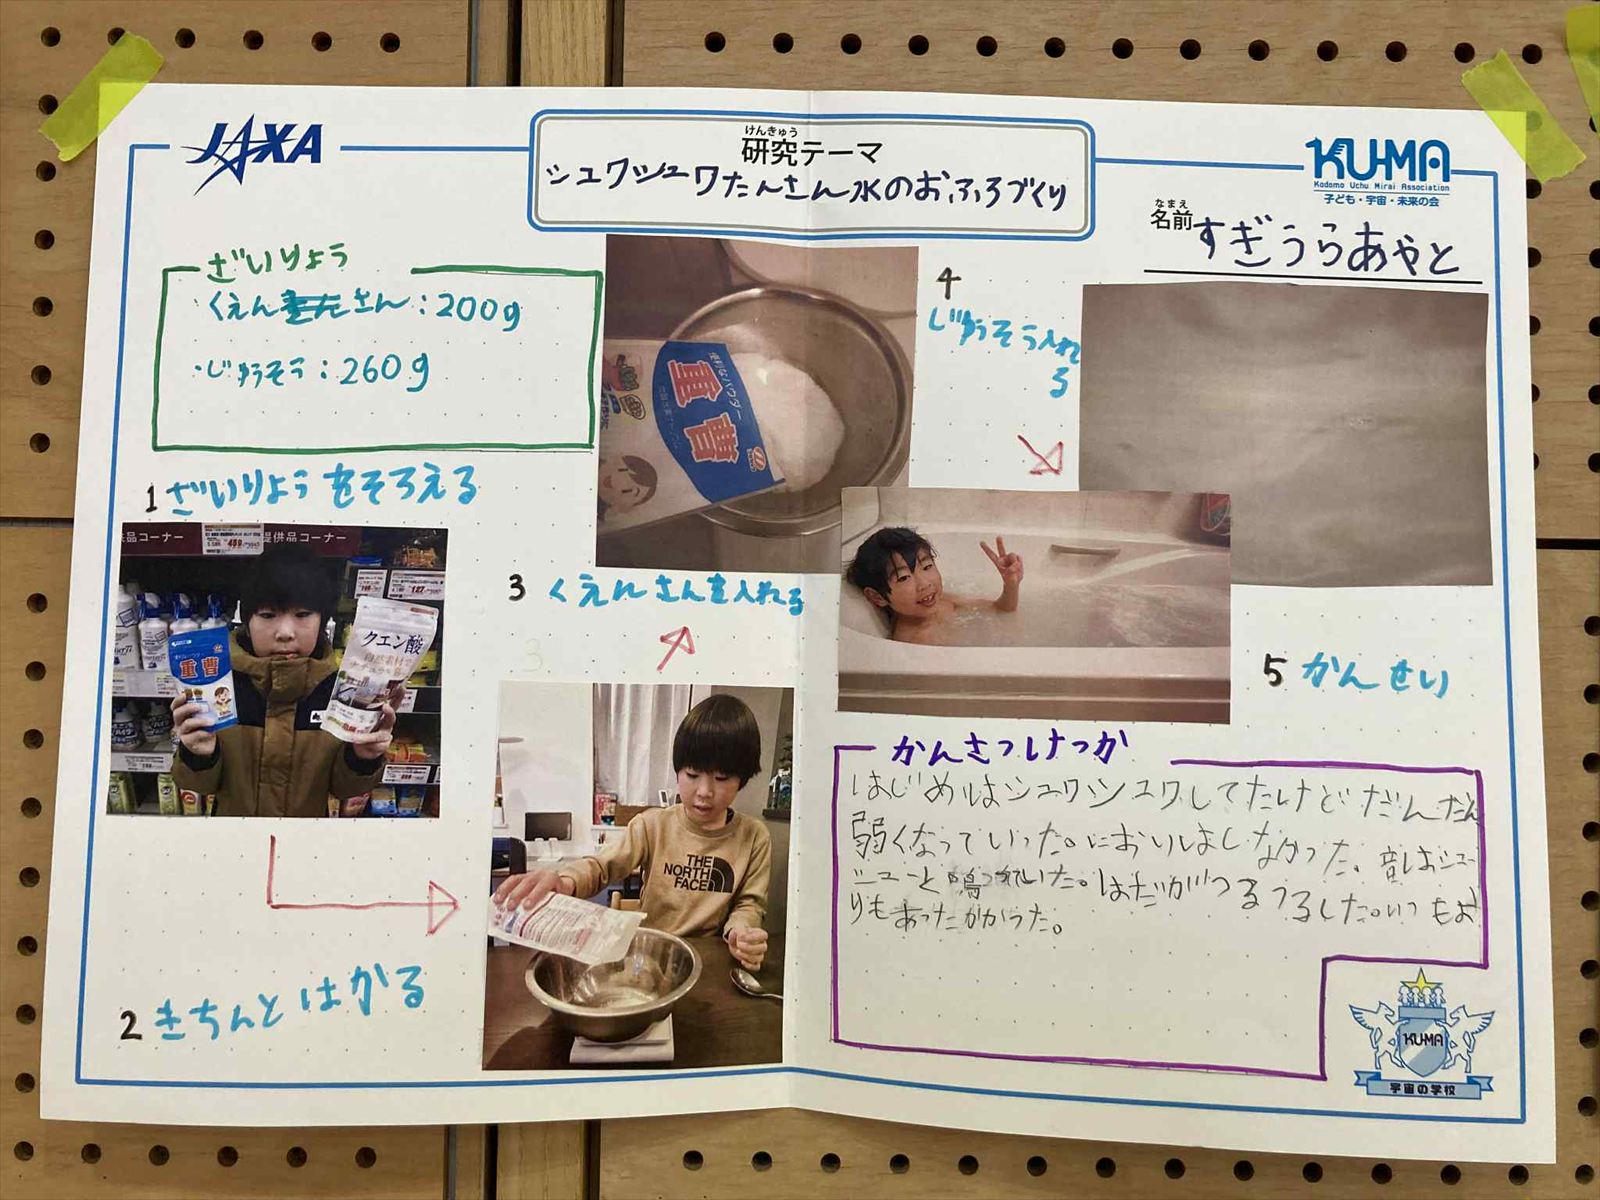 JAXA
けんきゅう
研究テーマ
シュワシュワたんさん水のおふろづくり
KU-MA
Kodomo Uchu Mirai Association
子ども・宇宙・未来の会
なまえ
名前 すぎうらあやと
ざいりょう
くえんさん:200g
・じゅうそう:260g
1 ざいりょうをそろえる
提供品コーナー
重曹
クエン酸
2 きちんとはかる
THE
NORTH
FACE
3 くえんさんを入れる
重曹
4
じゅうそう入れ
る
5 かんせい
かんさつけっか
はじめはシュワシュワしてたけどだんだん
弱くなっていった。においはしなかった。音はシュー
シューと鳴っていた。はだがつるつるした。いつもよ
りもあったかかった。
KU-MA
宇宙の学校